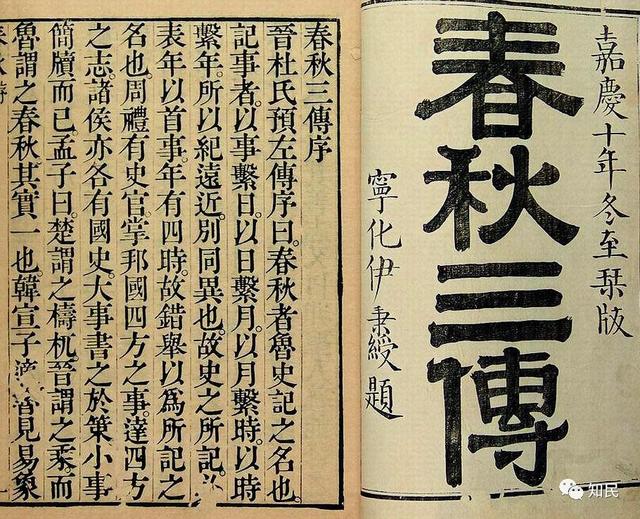 嘉慶十年冬至栞版
春秋三傳
寧化伊秉綬題
春秋三傳序
晉杜氏預左傳序曰。春秋者魯史記之名也。
記事者。以事繫日。以日繫月。以月繫時。以時
繫年。所以紀遠近。別同異也。故史之所記。必
表年以首事。年有四時。故錯舉以為所記之
名也。周禮有史官。掌邦國四方之事。達四方
之志。諸侯亦各有國史。大事書之於策。小事
簡牘而已。孟子曰。楚謂之檮杌。晉謂之乘。而
魯謂之春秋。其實一也。韓宣子適魯。見易象
知民